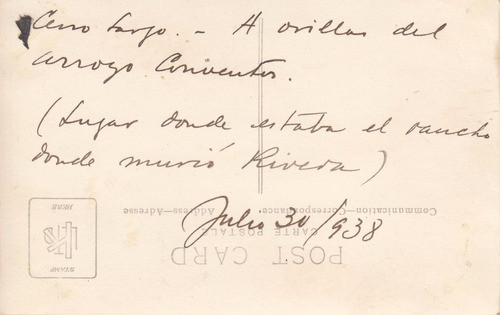 Cerro Largo. - A orillas del
arroyo Conventos.
(Lugar donde estaba el rancho
donde murió Rivera)
Julio 30/938
Communication—Correspondance Address—Adresse
CARTE POSTALE
POST CARD
STAMP
HERE